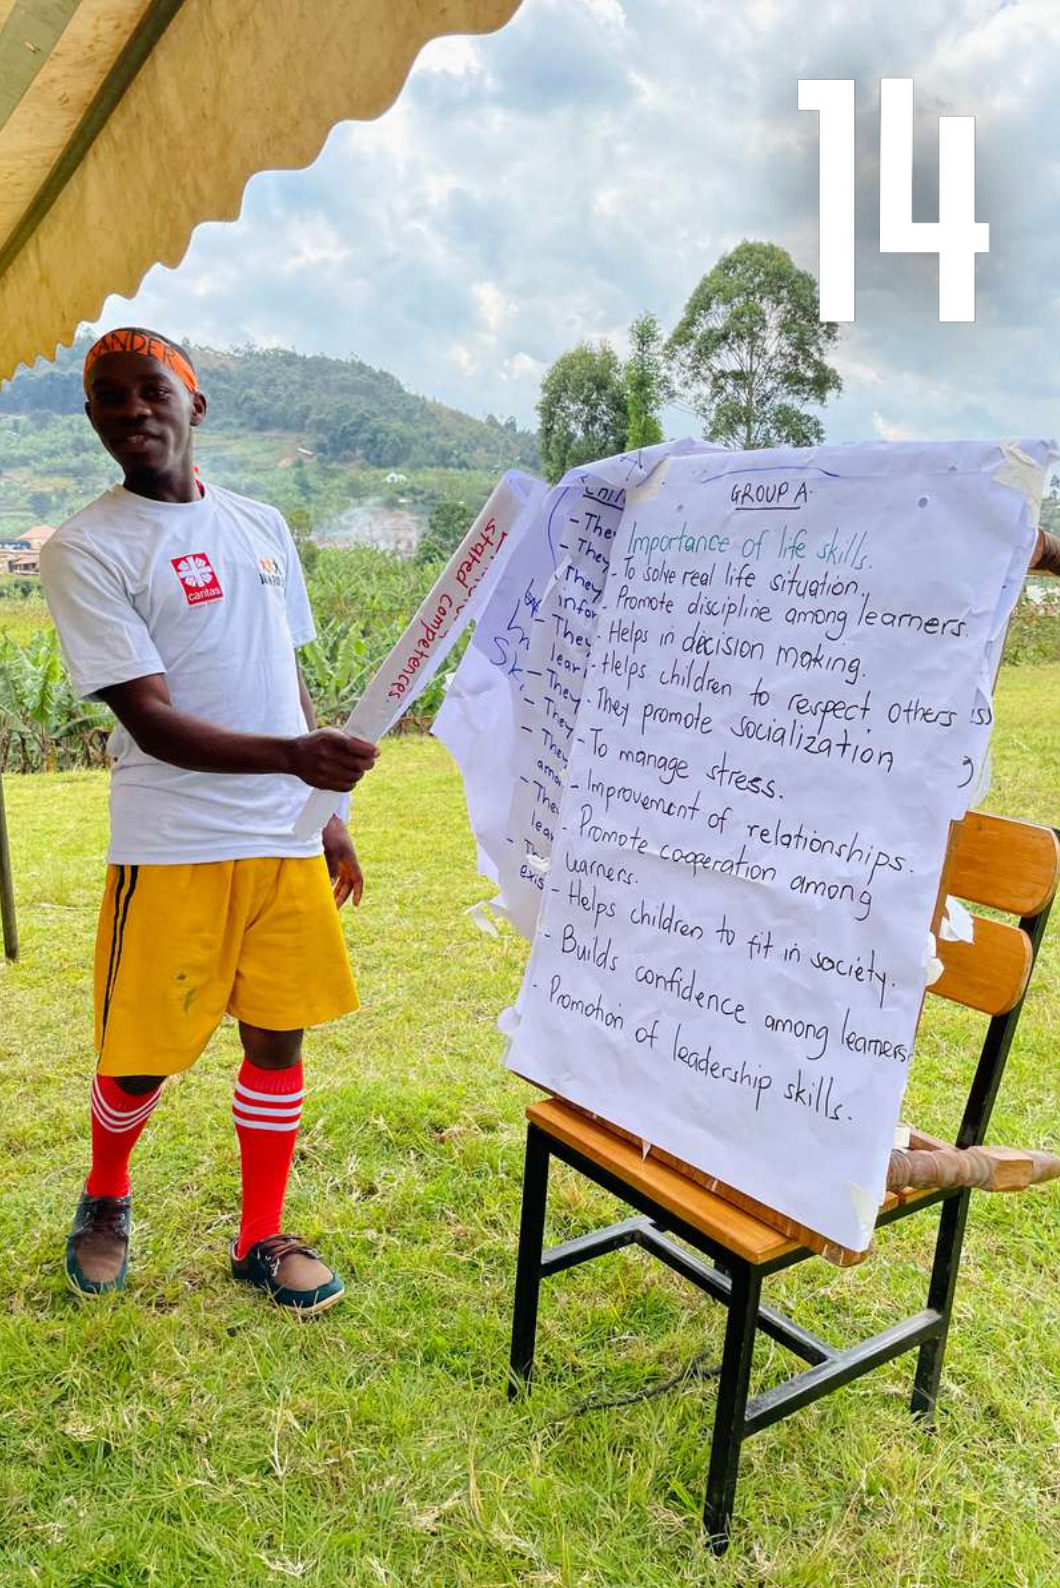 14
ANDER
caritas
stated competences.
GROUP A.
Importance of life skills.
- To solve real life situation.
- Promote discipline among learners.
- Helps in decision making.
- Helps children to respect others
- They promote socialization
- To manage stress.
- Improvement of relationships.
- Promote cooperation among
learners.
- Helps children to fit in society.
- Builds confidence among learners
- Promotion of leadership skills.
- They
- They
They
- They
- They
- They